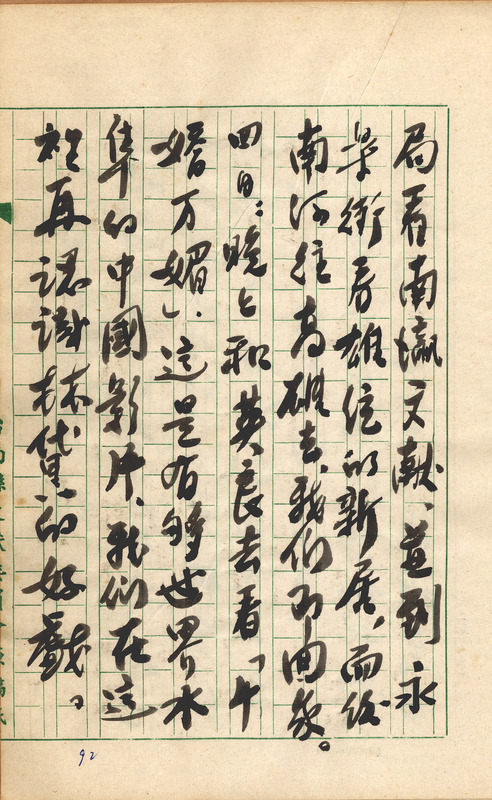 局看南瀛文獻、並到永
樂街看雄信的新居，而後
南河往高雄去、我們即回家。
四日：晚上和英良去看「千
嬌万媚」．這是有夠世界水
隼的中國影片、我們在這
裡再認識林黛的好戲。
92